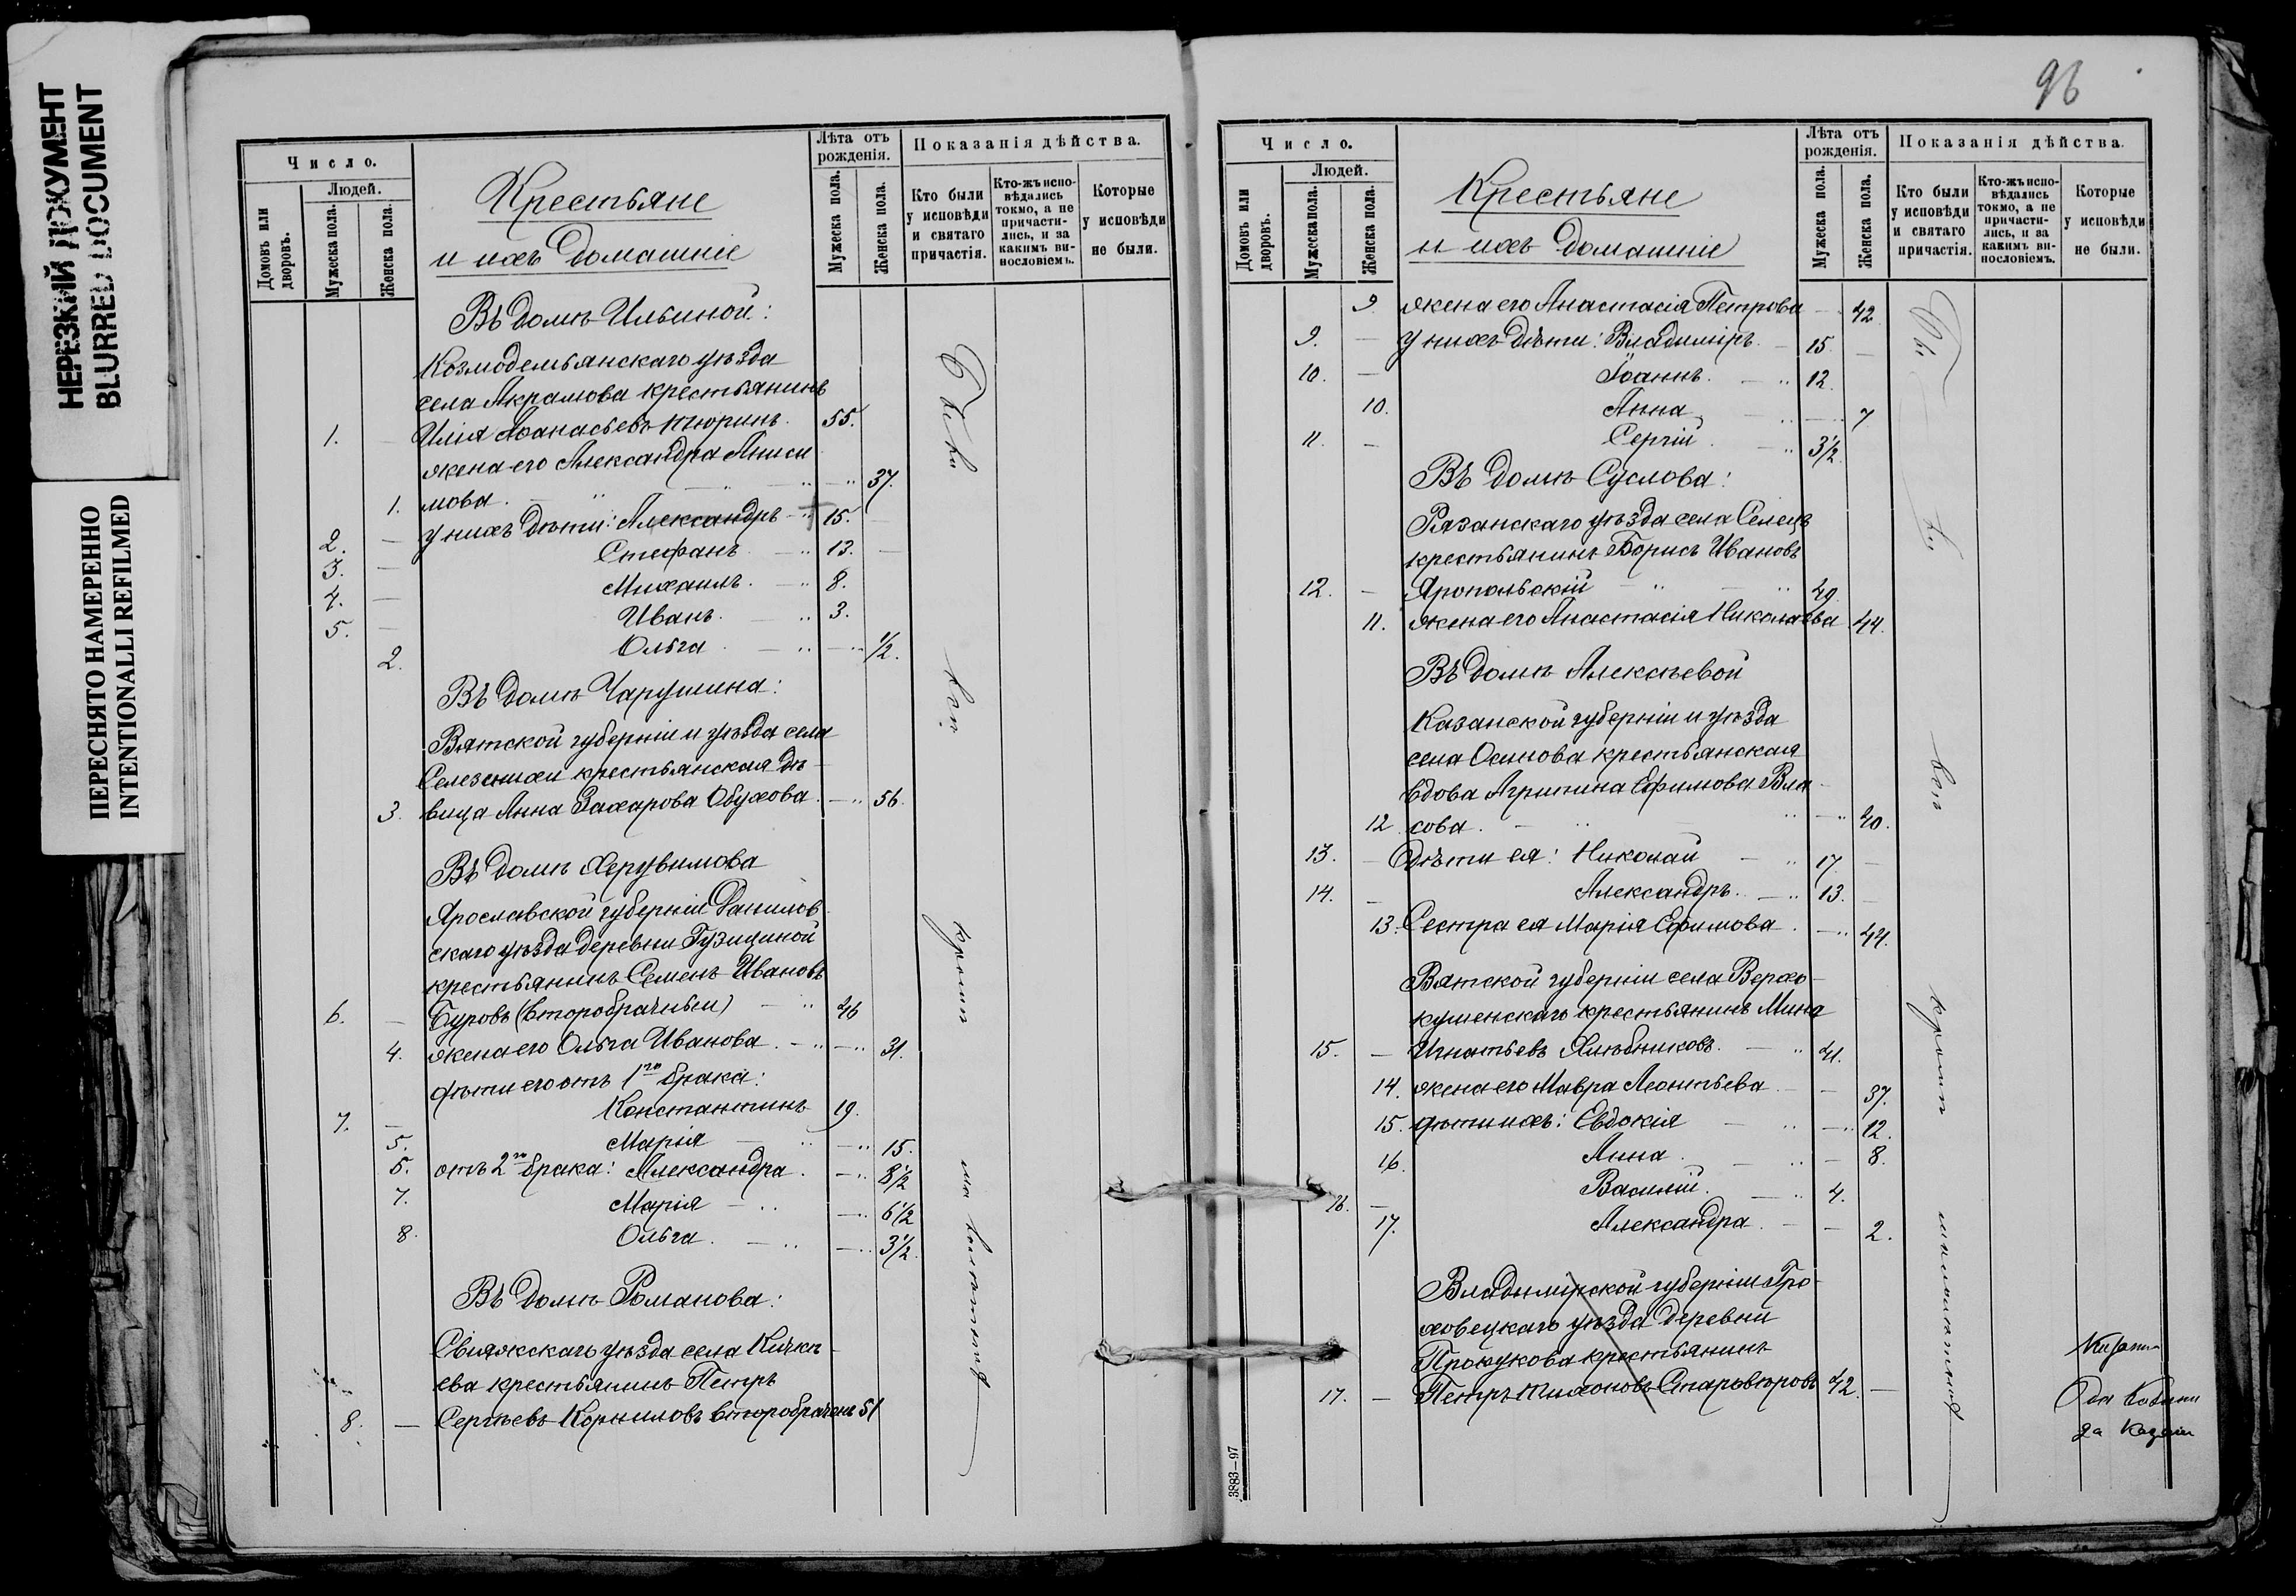 НЕРЕЗКИЙ ДОКУМЕНТ
BLURRED DOCUMENT
ПЕРЕСНЯТО НАМЕРЕННО
INTENTIONALLI REFILMED
Число.
Людей.
Домовъ или дворовъ.
Мужеска пола.
Женска пола.
Крестьяне
и ихъ домашніе
Лѣта отъ рожденія.
Мужеска пола.
Женска пола.
Показанія дѣйства.
Кто были у исповѣди и святаго причастія.
Кто-жъ исповѣдались токмо, а не причастились, и за какимъ винословіемъ.
Которые у исповѣди не были.
Въ домѣ Ильиной:
Козмодемьянскаго уѣзда
села Акрамова крестьянинъ
1. — Илія Аѳанасьевъ Тюринъ. 55.
жена его Александра Аниси
1. мова. — 37.
2. — у нихъ дѣти: Александръ — 15. —
3. — Стефанъ — 13. —
4. — Михаилъ. — 8.
5. — Иванъ. — 3.
2. Ольга — 1/2.
Въ домѣ Чарушина:
Вятской губерніи и уѣзда села
Селезенихи крестьянская дѣ-
3. вица Анна Захарова Обухова. — 56.
Въ домѣ Херувимова
Ярославской губерніи Данилов-
скаго уѣзда деревни Гузициной
крестьянинъ Семенъ Ивановъ
6. — Буровъ (второбрачный) — 46
4. жена его Ольга Иванова. — 31.
дѣти его отъ 1го брака:
7. — Константинъ 19.
5. Марія — 15.
6. отъ 2го брака: Александра. — 8 1/2
7. Марія — 6 1/2
8. Ольга. — 3 1/2.
Въ домѣ Романова:
Свіяжскаго уѣзда села Кичкѣ-
ева крестьянинъ Петръ
8. — Сергѣевъ Корниловъ второбраченъ 51
всѣ кромѣ
96
Число.
Людей.
Домовъ или дворовъ.
Мужеска пола.
Женска пола.
Крестьяне
и ихъ домашніе
Лѣта отъ рожденія.
Мужеска пола.
Женска пола.
Показанія дѣйства.
Кто были у исповѣди и святаго причастія.
Кто-жъ исповѣдались токмо, а не причастились, и за какимъ винословіемъ.
Которые у исповѣди не были.
9. жена его Анастасія Петрова — 42
9. — у нихъ дѣти: Владиміръ. — 15. —
10. — Іоаннъ. — 12.
10. Анна — 7
11. — Сергій. 3 1/2.
Въ домѣ Суслова:
Рязанскаго уѣзда села Селецъ
крестьянинъ Борисъ Ивановъ
12. — Яропольскій — 49.
11. жена его Анастасія Николаева 44.
Въ домѣ Алексѣевой
Казанской губерніи и уѣзда
села Осинова крестьянская
вдова Агрипина Ефимова Вла-
12 сова. — 40.
13. — Дѣти ея: Николай — 17. —
14. — Александръ. — 13. —
13. Сестра ея Марія Ефимова. — 44.
Вятской губерніи села Верхо-
кушенскаго крестьянинъ Мина
15. — Игнатьевъ Хлѣбниковъ. — 41.
14. жена его Мавра Леонтьева — 37.
15. дѣти ихъ: Евдокія — 12.
16. Анна. — 8.
16. — Василій. — 4.
17. Александра. — 2.
Владимірской губерніи Гро-
ховецкаго уѣзда деревни
Прокукова крестьянинъ
17. — Петръ Тихоновъ Старовѣровъ 42. —
всѣ кромѣ
3883—97